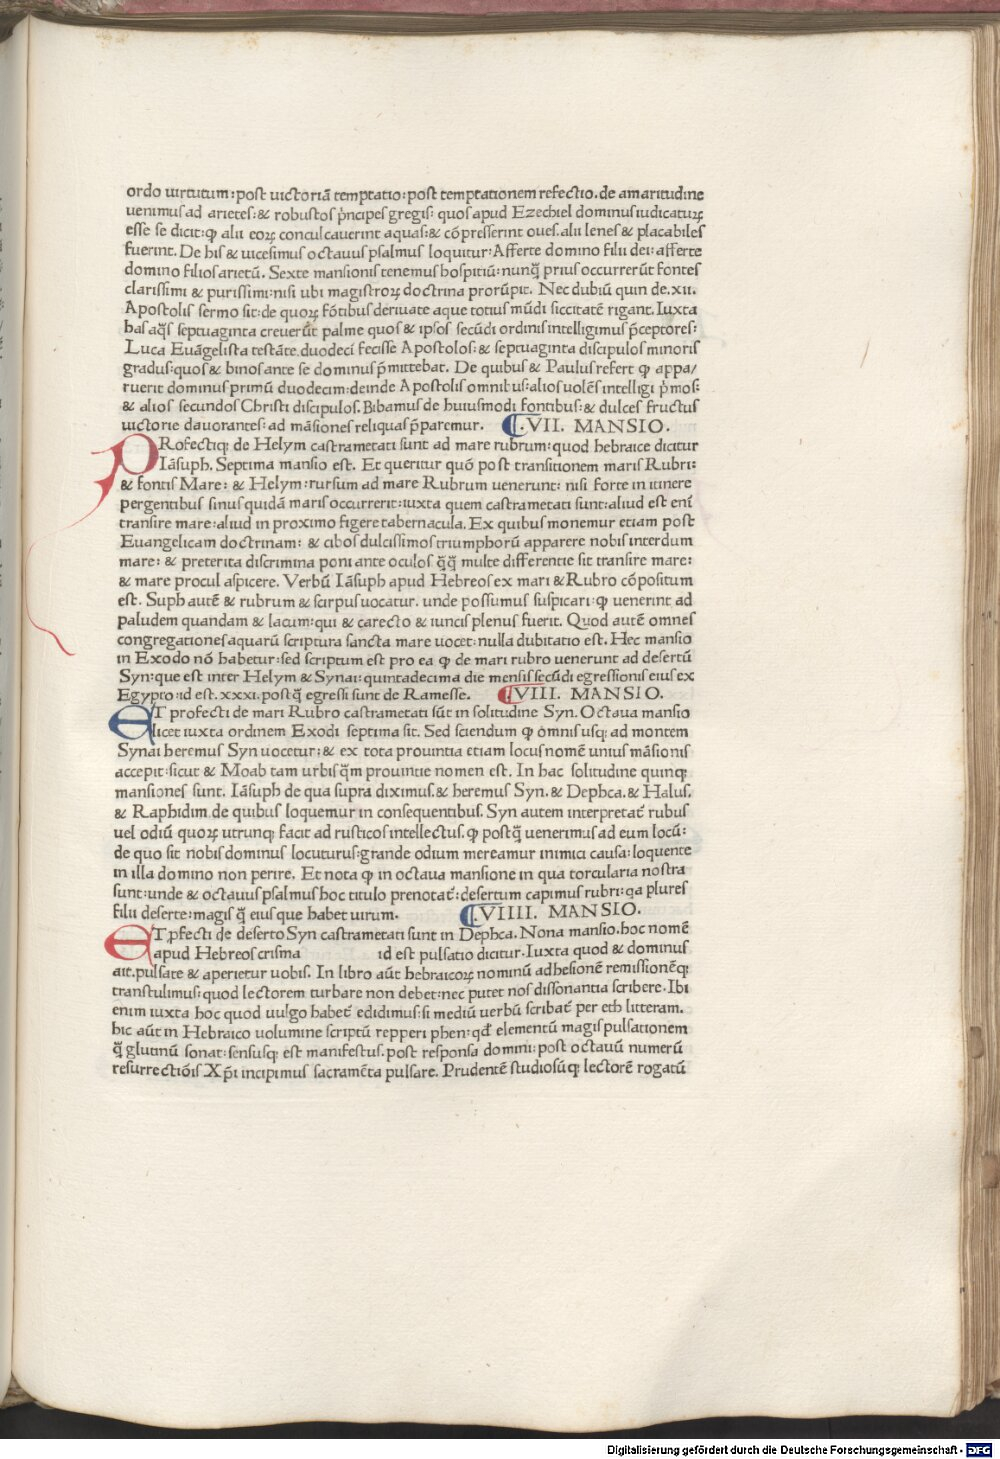 ordo uirtutum: post uictoriā temptatio: post temptationem refectio. de amaritudine
uenimus ad arietes: & robustos p̄ncipes gregis: quos apud Ezechiel dominus iudicaturꝝ
esse se dicit: ꝙ alii eoꝝ conculcauerint aquas: & cōpresserint oues. alii lenes & placabiles
fuerint. De his & uicesimus octauus psalmus loquitur: Afferte domino filii dei: afferte
domino filios arietū. Sexte mansionis tenemus hospitiū: nunq̄ prius occurrerūt fontes
clarissimi & purissimi: nisi ubi magistroꝝ doctrina prorūpit. Nec dubiū quin de .xii.
Apostolis sermo sit: de quoꝝ fōtibus deriuate aque totius mūdi siccitatē rigant. Iuxta
has aq̄s septuaginta creuerūt palme quos & ipsos secūdi ordinis intelligimus p̄ceptores:
Luca Euāgelista testāte. duodeci fecisse Apostolos: & septuaginta discipulos minoris
gradus: quos & binos ante se dominus p̄mittebat. De quibus & Paulus refert ꝙ appa/
ruerit dominus primū duodecim: deinde Apostolis omnibus: alios uolēs intelligi p̄mos:
& alios secundos Christi discipulos. Bibamus de huiusmodi fontibus: & dulces fructus
uictorie dauorantes: ad māsiones reliquas p̄paremur. ¶.VII. MANSIO.
PRofectiq; de Helym castrametati sunt ad mare rubrum: quod hebraice dicitur
Iāsuph. Septima mansio est. Et queritur quō post transitionem maris Rubri:
& fontis Mare: & Helym: rursum ad mare Rubrum uenerunt: nisi forte in itinere
pergentibus sinus quidā maris occurrerit: iuxta quem castrametati sunt: aliud est enī
transire mare: aliud in proximo figere tabernacula. Ex quibus monemur etiam post
Euangelicam doctrinam: & cibos dulcissimos triumphorū apparere nobis interdum
mare: & preterita discrimina poni ante oculos q̄q̄ multe differentie sit transire mare:
& mare procul aspicere. Verbū Iāsuph apud Hebreos ex mari & Rubro cōpositum
est. Suph autē & rubrum & scirpus uocatur. unde possumus suspicari: ꝙ uenerint ad
paludem quandam & lacum: qui & carecto & iuncis plenus fuerit. Quod autē omnes
congregationes aquarū scriptura sancta mare uocet: nulla dubitatio est. Hec mansio
in Exodo nō habetur: sed scriptum est pro ea ꝙ de mari rubro uenerunt ad desertū
Syn: que est inter Helym & Synai: quintadecima die mensis secūdi egressionis eius ex
Egypto: id est .xxxi. postq̄ egressi sunt de Ramesse. ¶.VIII. MANSIO.
ET profecti de mari Rubro castrametati sūt in solitudine Syn. Octaua mansio
licet iuxta ordinem Exodi septima sit. Sed sciendum ꝙ omnis usq; ad montem
Synai heremus Syn uocetur: & ex tota prouintia etiam locus nomē unius māsionis
accepit: sicut & Moab tam urbis q̄m prouintie nomen est. In hac solitudine quinq;
mansiones sunt. Iāsuph de qua supra diximus. & heremus Syn. & Dephca. & Halus.
& Raphidim de quibus loquemur in consequentibus. Syn autem interpretat̄ rubus
uel odiū quoꝝ utrunq; facit ad rusticos intellectus. ꝙ postq̄ uenerimus ad eum locū:
de quo sit nobis dominus locuturus: grande odium mereamur inimici causa: loquente
in illa domino non perire. Et nota ꝙ in octaua mansione in qua torcularia nostra
sunt: unde & octauus psalmus hoc titulo prenotat̄: desertum capimus rubri: qa plures
filii deserte: magis q̄ eius que habet uirum. ¶.VIIII. MANSIO.
ET ꝓfecti de deserto Syn castrametati sunt in Dephca. Nona mansio. hoc nomē
apud Hebreos crisma id est pulsatio dicitur. Iuxta quod & dominus
ait. pulsate & aperietur uobis. In libro aūt hebraicoꝝ nominū adhesionē remissionēq;
transtulimus: quod lectorem turbare non debet: nec putet nos dissonantia scribere. Ibi
enim iuxta hoc quod uulgo habet̄ edidimus: si mediū uerbū scribat̄ per eth litteram.
hic aūt in Hebraico uolumine scriptū repperi phen: qd̄ elementū magis pulsationem
q̄ glutinū sonat: sensusq; est manifestus. post responsa domini: post octauū numerū
resurrectiōis. Xp̄i incipimus sacramēta pulsare. Prudentē studiosūq; lectorē rogatū
Digitalisierung gefördert durch die Deutsche Forschungsgemeinschaft - DFG